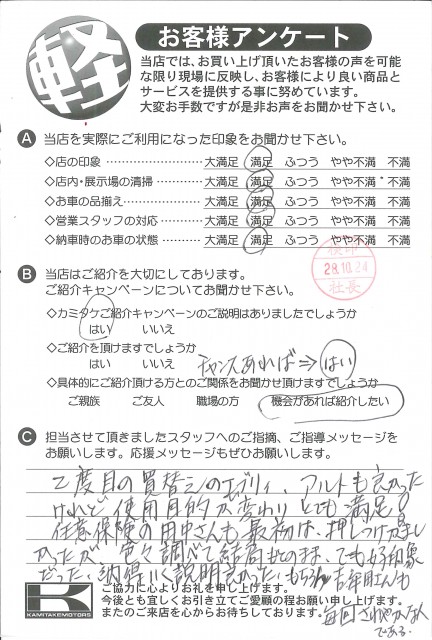 軽
お客様アンケート
当店では、お買い上げ頂いたお客様の声を可能
な限り現場に反映し、お客様により良い商品と
サービスを提供する事に努めています。
大変お手数ですが是非お声をお聞かせ下さい。
A 当店を実際にご利用になった印象をお聞かせ下さい。
◇店の印象 大満足 満足 ふつう やや不満 不満
◇店内・展示場の清掃 大満足 満足 ふつう やや不満 不満
◇お車の品揃え 大満足 満足 ふつう やや不満 不満
◇営業スタッフの対応 大満足 満足 ふつう やや不満 不満
◇納車時のお車の状態 大満足 満足 ふつう やや不満 不満
検印
28.10.24
社長
B 当店はご紹介を大切にしております。
ご紹介キャンペーンについてお聞かせ下さい。
◇カミタケご紹介キャンペーンのご説明はありましたでしょうか
はい いいえ
◇ご紹介を頂けますでしょうか
はい いいえ チャンスあれば⇒はい
◇具体的にご紹介頂ける方とのご関係をお聞かせ頂けますでしょうか
ご親族 ご友人 職場の方 機会があれば紹介したい
C 担当させて頂きましたスタッフへのご指摘、ご指導メッセージを
お願いします。応援メッセージもぜひお願いします。
2度目の買替えのエブリィ、アルトも良かった
けれど使用目的が変わりとても満足!
任意保険の田中さんも最初は、押しつけがまし
かったが、色々調べて結局そのまま、でも好印象
だった、納得いく説明だった、もちろん さんも
ご協力に心よりお礼を申し上げます。
今後とも宜しくお引き立てご愛顧の程お願い申し上げます。
またのご来店を心からお待ちしております。
毎回 さわやかな人
である。
K
KAMITAKE MOTORS